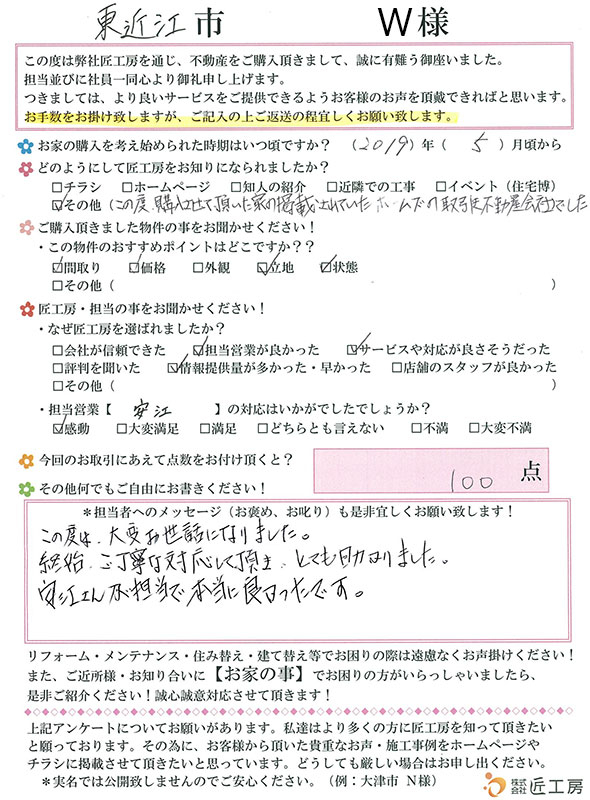 東近江市 W様
この度は弊社匠工房を通じ、不動産をご購入頂きまして、誠に有難う御座いました。
担当並びに社員一同心より御礼申し上げます。
つきましては、より良いサービスをご提供できるようお客様のお声を頂戴できればと思います。
お手数をお掛け致しますが、ご記入の上ご返送の程宜しくお願い致します。
お家の購入を考え始められた時期はいつ頃ですか？ （2019）年（5）月頃から
どのようにして匠工房をお知りになられましたか？
□チラシ □ホームページ □知人の紹介 □近隣での工事 □イベント（住宅博）
☑その他（この度、購入させて頂いた家の掲載されていたホームズの取引先不動産会社でした
ご購入頂きました物件の事をお聞かせください！
・この物件のおすすめポイントはどこですか？？
☑間取り ☑価格 □外観 ☑立地 ☑状態
□その他（ ）
匠工房・担当の事をお聞かせください！
・なぜ匠工房を選ばれましたか？
□会社が信頼できた ☑担当営業が良かった ☑サービスや対応が良さそうだった
□評判を聞いた ☑情報提供量が多かった・早かった □店舗のスタッフが良かった
□その他（ ）
・担当営業【 安江 】の対応はいかがでしたでしょうか？
☑感動 □大変満足 □満足 □どちらとも言えない □不満 □大変不満
今回のお取引にあえて点数をお付け頂くと？ 100 点
その他何でもご自由にお書きください！
＊担当者へのメッセージ（お褒め、お叱り）も是非宜しくお願い致します！
この度は、大変お世話になりました。
終始、ご丁寧な対応して頂き、とても助かりました。
安江さんが担当で本当に良かったです。
リフォーム・メンテナンス・住み替え・建て替え等でお困りの際は遠慮なくお声掛けください！
また、ご近所様・お知り合いに【お家の事】でお困りの方がいらっしゃいましたら、
是非ご紹介ください！誠心誠意対応させて頂きます！
上記アンケートについてお願いがあります。私達はより多くの方に匠工房を知って頂きたい
と願っております。その為に、お客様から頂いた貴重なお声・施工事例をホームページや
チラシに掲載させて頂きたいと思っています。どうしても厳しい場合はお申し出ください。
＊実名では公開致しませんのでご安心ください。（例：大津市 N様）
株式会社 匠工房